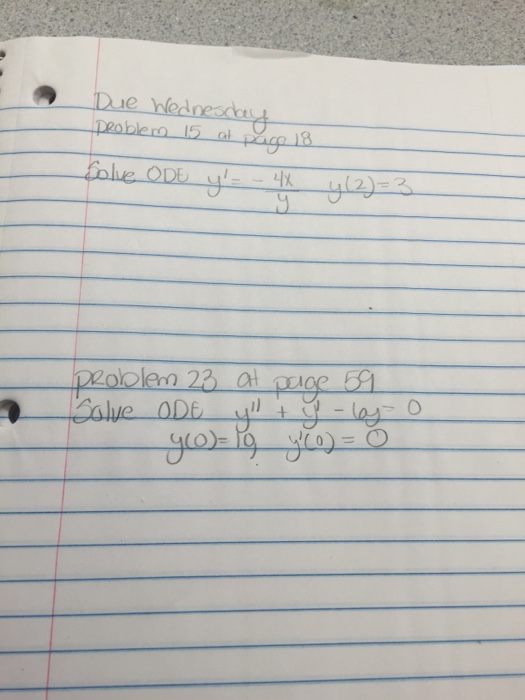 Due Wednesday
problem 15 at page 18
Solve ODE y' = - 4x/y y(2)=3
problem 23 at page 59
Solve ODE y'' + y' - 6y = 0
y(0)= 19 y'(0) = 0